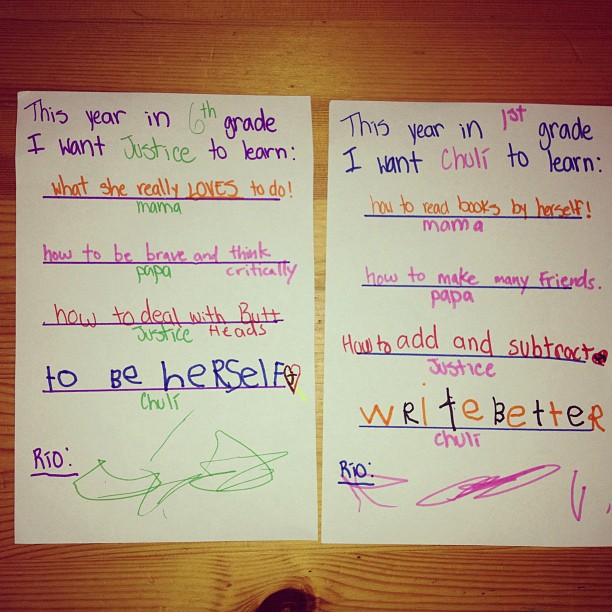 This year in 6th grade
I want Justice to learn:
what she really LOVES to do!
mama
how to be brave and think
papa critically
how to deal with Butt
Justice Heads
to BE HERSELF
Chulí
Rio:
This year in 1st grade
I want Chulí to learn:
how to read books by herself!
mama
how to make many Friends.
papa
How to add and subtract
Justice
WRitE BEttER
chulí
Rio: